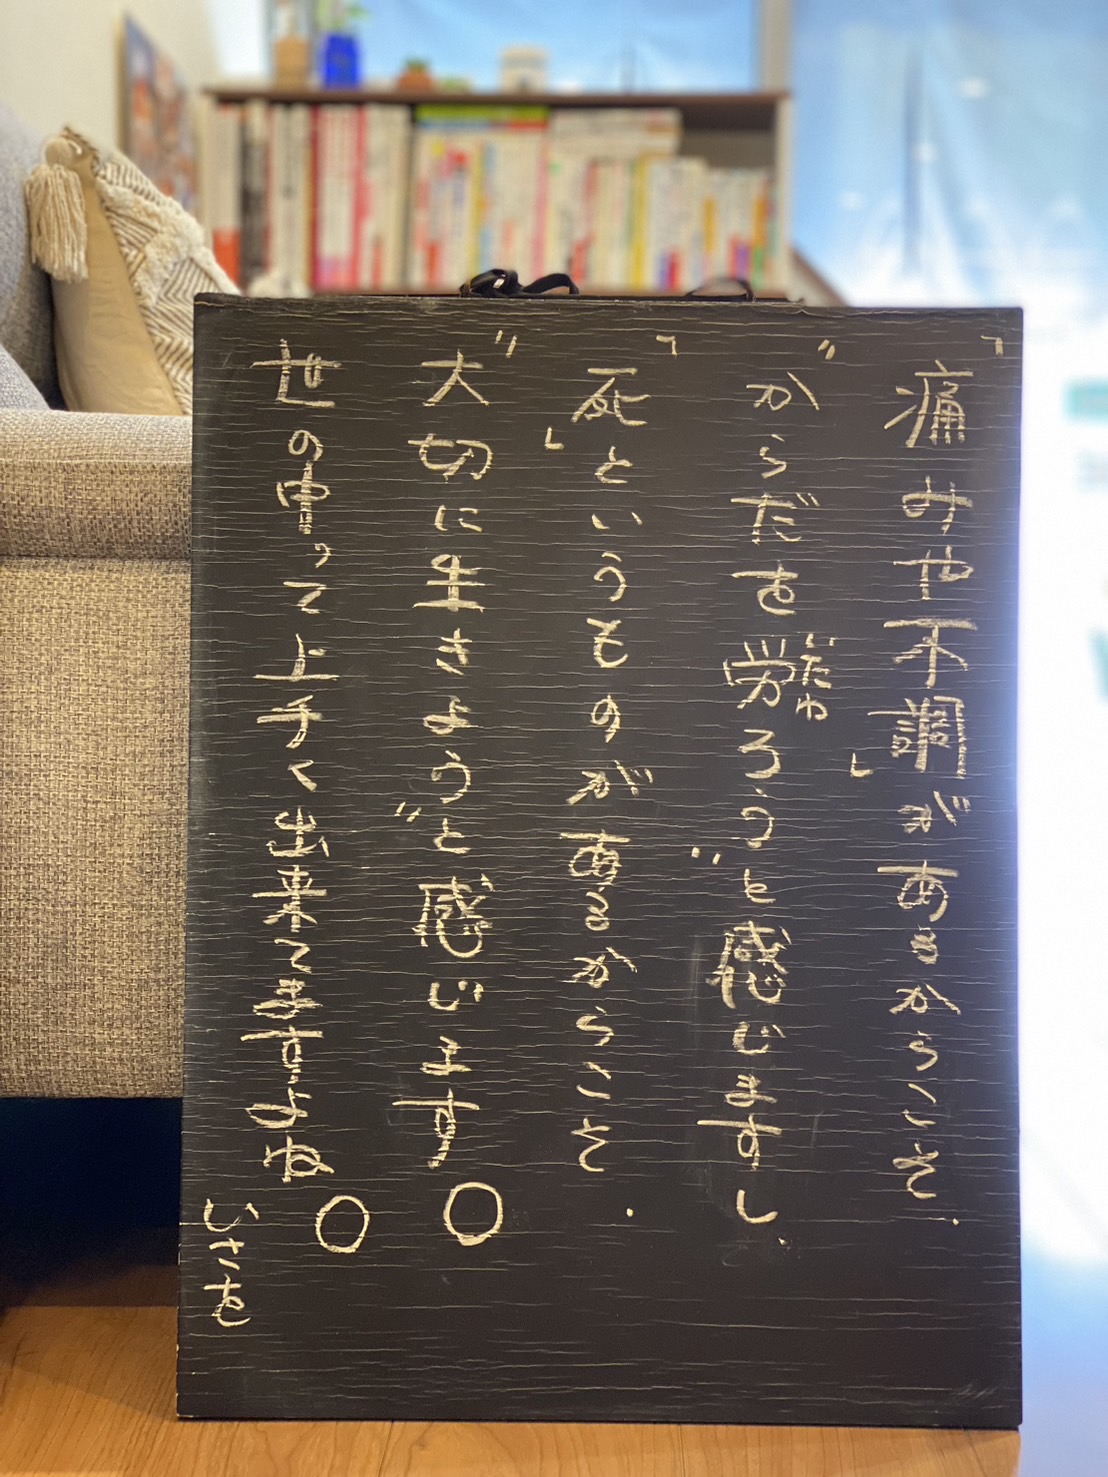 「痛みや不調」があるからこそ、
"からだを労(いたわ)ろう"と感じますし、
「死」というものがあるからこそ、
"大切に生きよう"と感じます。
世の中って上手く出来てますよね。
いさを